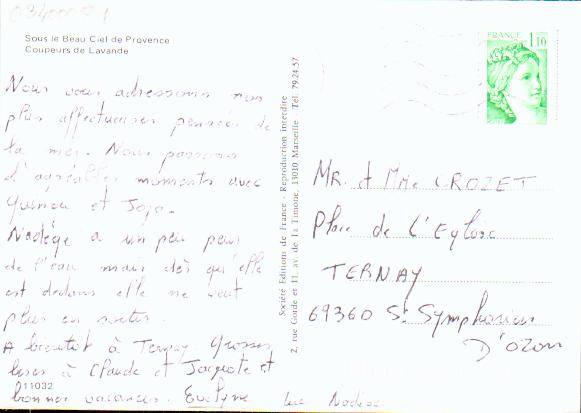 03400051
Sous le Beau Ciel de Provence
Coupeurs de Lavande
FRANCE
1,10
Nous vous adressons nos
plus affectueuses pensées de
la mer. Nous passons
d'agréables moments avec
et Jojo.
Nadège a un peu peur
de l'eau mais dès qu'elle
est dedans elle ne veut
plus en sortir.
A bientôt à Ternay Grosses
bises à Claude et Jacquote et
bonnes vacances. Evelyne Luc Nadège
111032
Société Editions de France - Reproduction interdite
2, rue Gorde et 11, av. de la Timone, 13010 Marseille Tél. 79.24.57
MR. et Mme CROZET
Place de L'Eglise
TERNAY
69360 St Symphorien
D'OZON